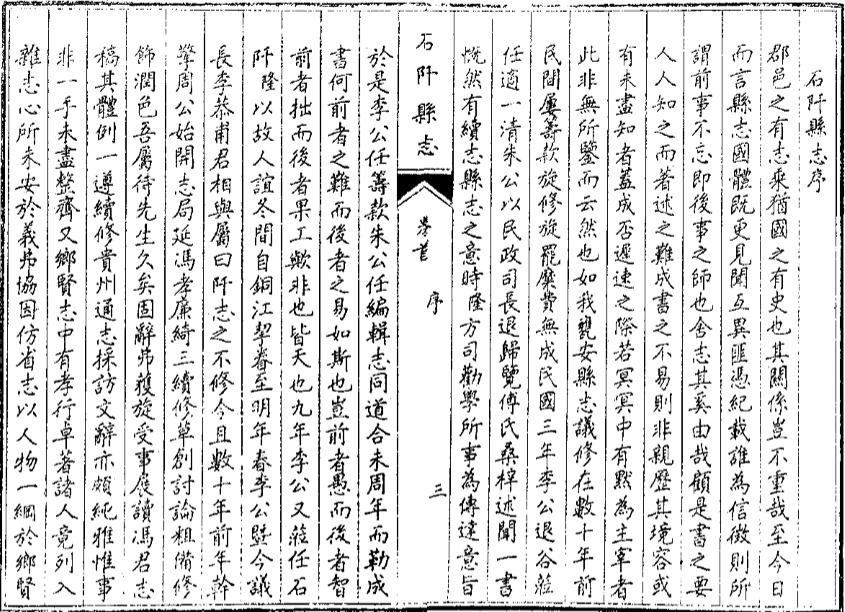 石阡縣志序
郡邑之有志乘猶國之有史也其關係豈不重哉至今日
而言縣志國體既更見聞互異匪憑紀載誰為信徵則所
謂前事不忘即後事之師也舍志其奚由哉顧是書之要
人人知之而著述之難成書之不易則非親歷其境容或
有未盡知者蓋成否遲速之際若冥冥中有默為主宰者
此非無所鑒而云然也如我甕安縣志議修在數十年前
民間屢籌款旋修旋罷糜費無成民國三年李公退谷蒞
任適一清朱公以民政司長退歸覽傅氏桑梓述聞一書
慨然有續志縣志之意時隆方司勸學所事為傳達意旨
石阡縣志
卷首
序
三
於是李公任籌款朱公任編輯志同道合未周年而勒成
書何前者之難而後者之易如斯也豈前者愚而後者智
前者拙而後者果工歟非也皆天也九年李公又蒞任石
阡隆以故人誼冬間自銅江挈眷至明年春李公暨今議
長李恭甫君相與屬曰阡志之不修今且數十年前年幹
擎周公始開志局延馮孝廉綺三續修草創討論粗備修
飾潤色吾屬待先生久矣固辭弗獲旋受事展讀馮君志
稿其體例一遵續修貴州通志採訪文辭亦頗純雅惟事
非一手未盡整齊又鄉賢志中有孝行卓著諸人竟列入
雜志心所未安於義弗協因仿省志以人物一綱於鄉賢